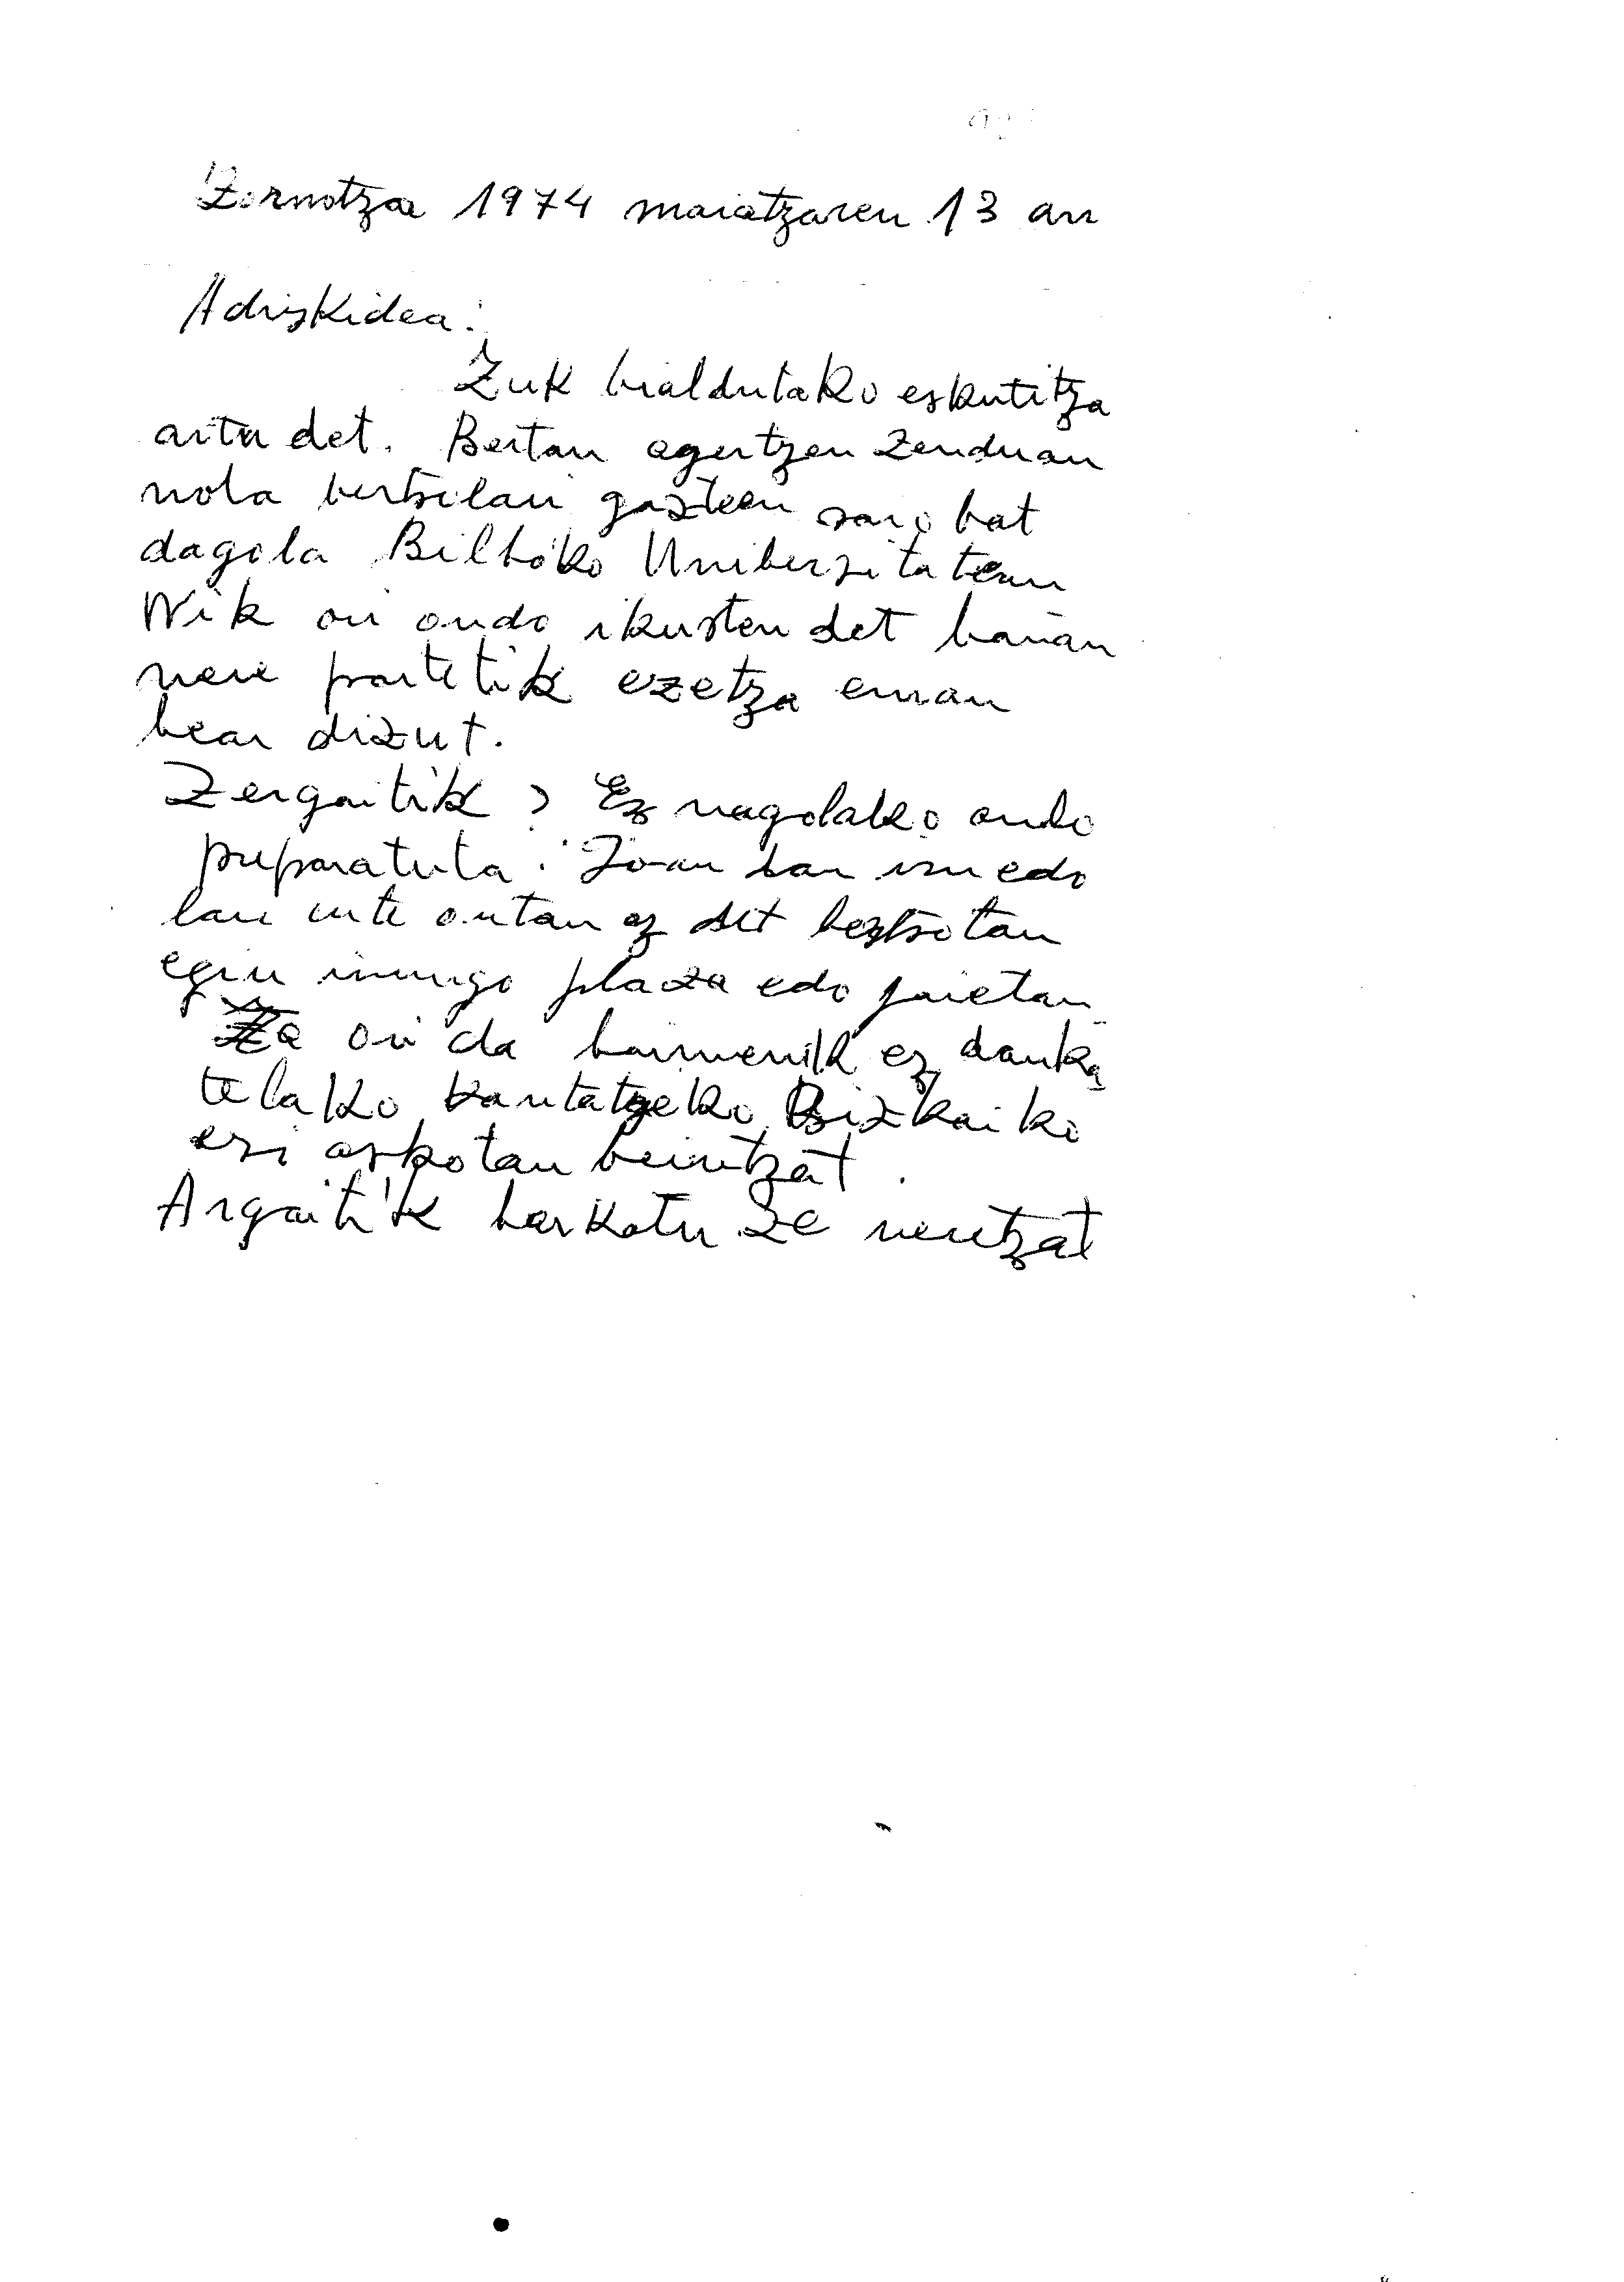 Zornotza 1974 maiatzaren 13 an
Adiskidea:
Zuk bialdutako eskutitza
artu det. Bertan agertzen zenduan
nola bertsolari gazteen saio bat
dagola Bilboko Unibersitatean
Nik ori ondo ikusten det bañan
nere partetik ezetza eman
bear dizut.
Zergaitik? Ez nagolako ondo
preparatuta. Joan dan iru edo
lau urte ontan ez det bertsotan
egin inungo plaza edo jaietan
Ta ori da baimenik ez dauka
telako kantatzeko Bizkaiko
eri askotan beintzat.
Argaitik barkatu ze neretzat